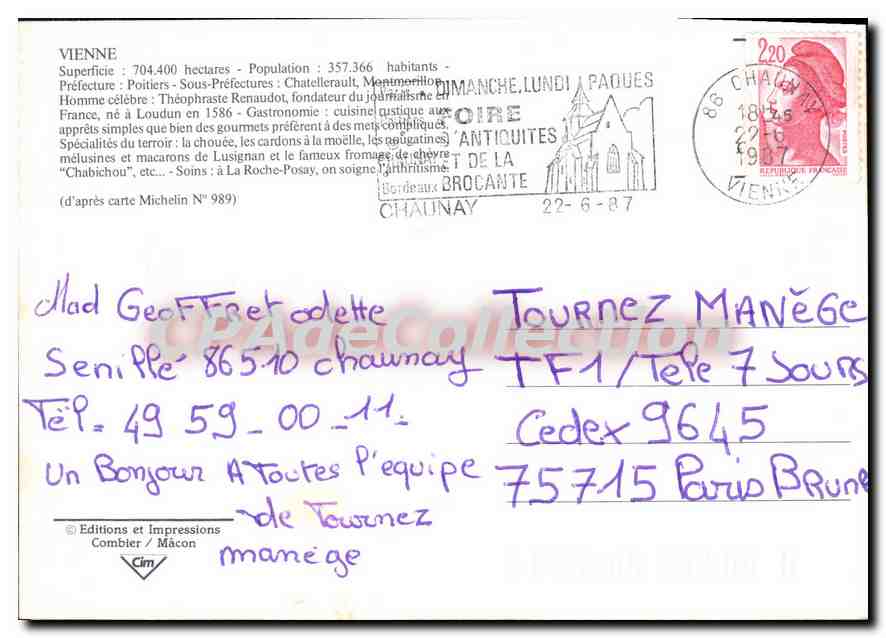 VIENNE
Superficie : 704.400 hectares - Population : 357.366 habitants -
Préfecture : Poitiers - Sous-Préfectures : Chatellerault, Montmorillon
Homme célèbre : Théophraste Renaudot, fondateur du journalisme en
France, né à Loudun en 1586 - Gastronomie : cuisine rustique aux
apprêts simples que bien des gourmets préfèrent à des mets compliqués.
Spécialités du terroir : la chouée, les cardons à la moëlle, les nougatines,
mélusines et macarons de Lusignan et le fameux fromage de chèvre
“Chabichou”, etc... - Soins : à La Roche-Posay, on soigne l'arthritisme.
(d'après carte Michelin N° 989)
DIMANCHE, LUNDI PAQUES
FOIRE
D'ANTIQUITES
ET DE LA
Bordeaux BROCANTE
CHAUNAY 22-6-87
86 CHAUNAY
18H45
22-6
1987
VIENNE
2,20
POSTES
REPUBLIQUE FRANÇAISE
Mad GeoFFret odette
Senillé 86510 chaunay
Tël. 49 59_00_11.
un Bonjour A Toutes l'equipe
de Tournez
manége
TOURNEZ MANĚGE
TF1/Tele 7 Jours
Cedex 9645
75715 Paris BRUNE
© Editions et Impressions
Combier / Mâcon
Cim
CPAdeCollection